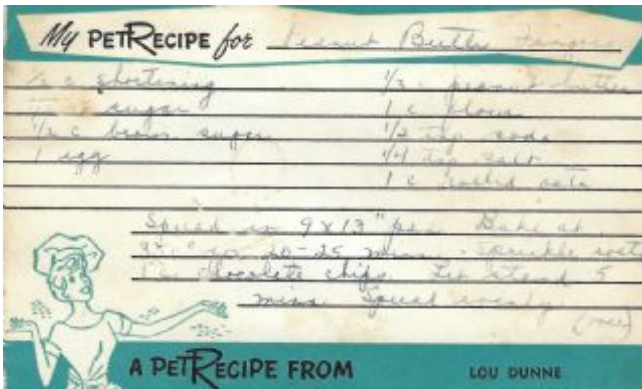 My PET RECIPE for Peanut Butter Fingers
1/2 c shortening 1/3 c peanut butter
sugar 1 c flour
1/2 c brown sugar 1/2 tsp soda
1 egg 1/4 tsp salt
1 c rolled oats
Spread in 9 x 13" pan. Bake at
20-25 min. Sprinkle with
1 c. chocolate chips. Let stand 5
mins. Spread evenly.
(over)
A PET RECIPE FROM LOU DUNNE